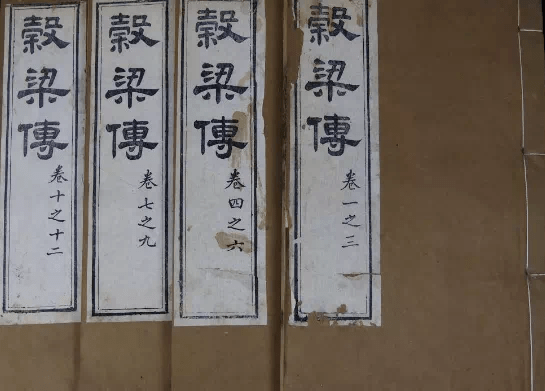 穀梁傳
卷一之三
穀梁傳
卷四之六
穀梁傳
卷七之九
穀梁傳
卷十之十二